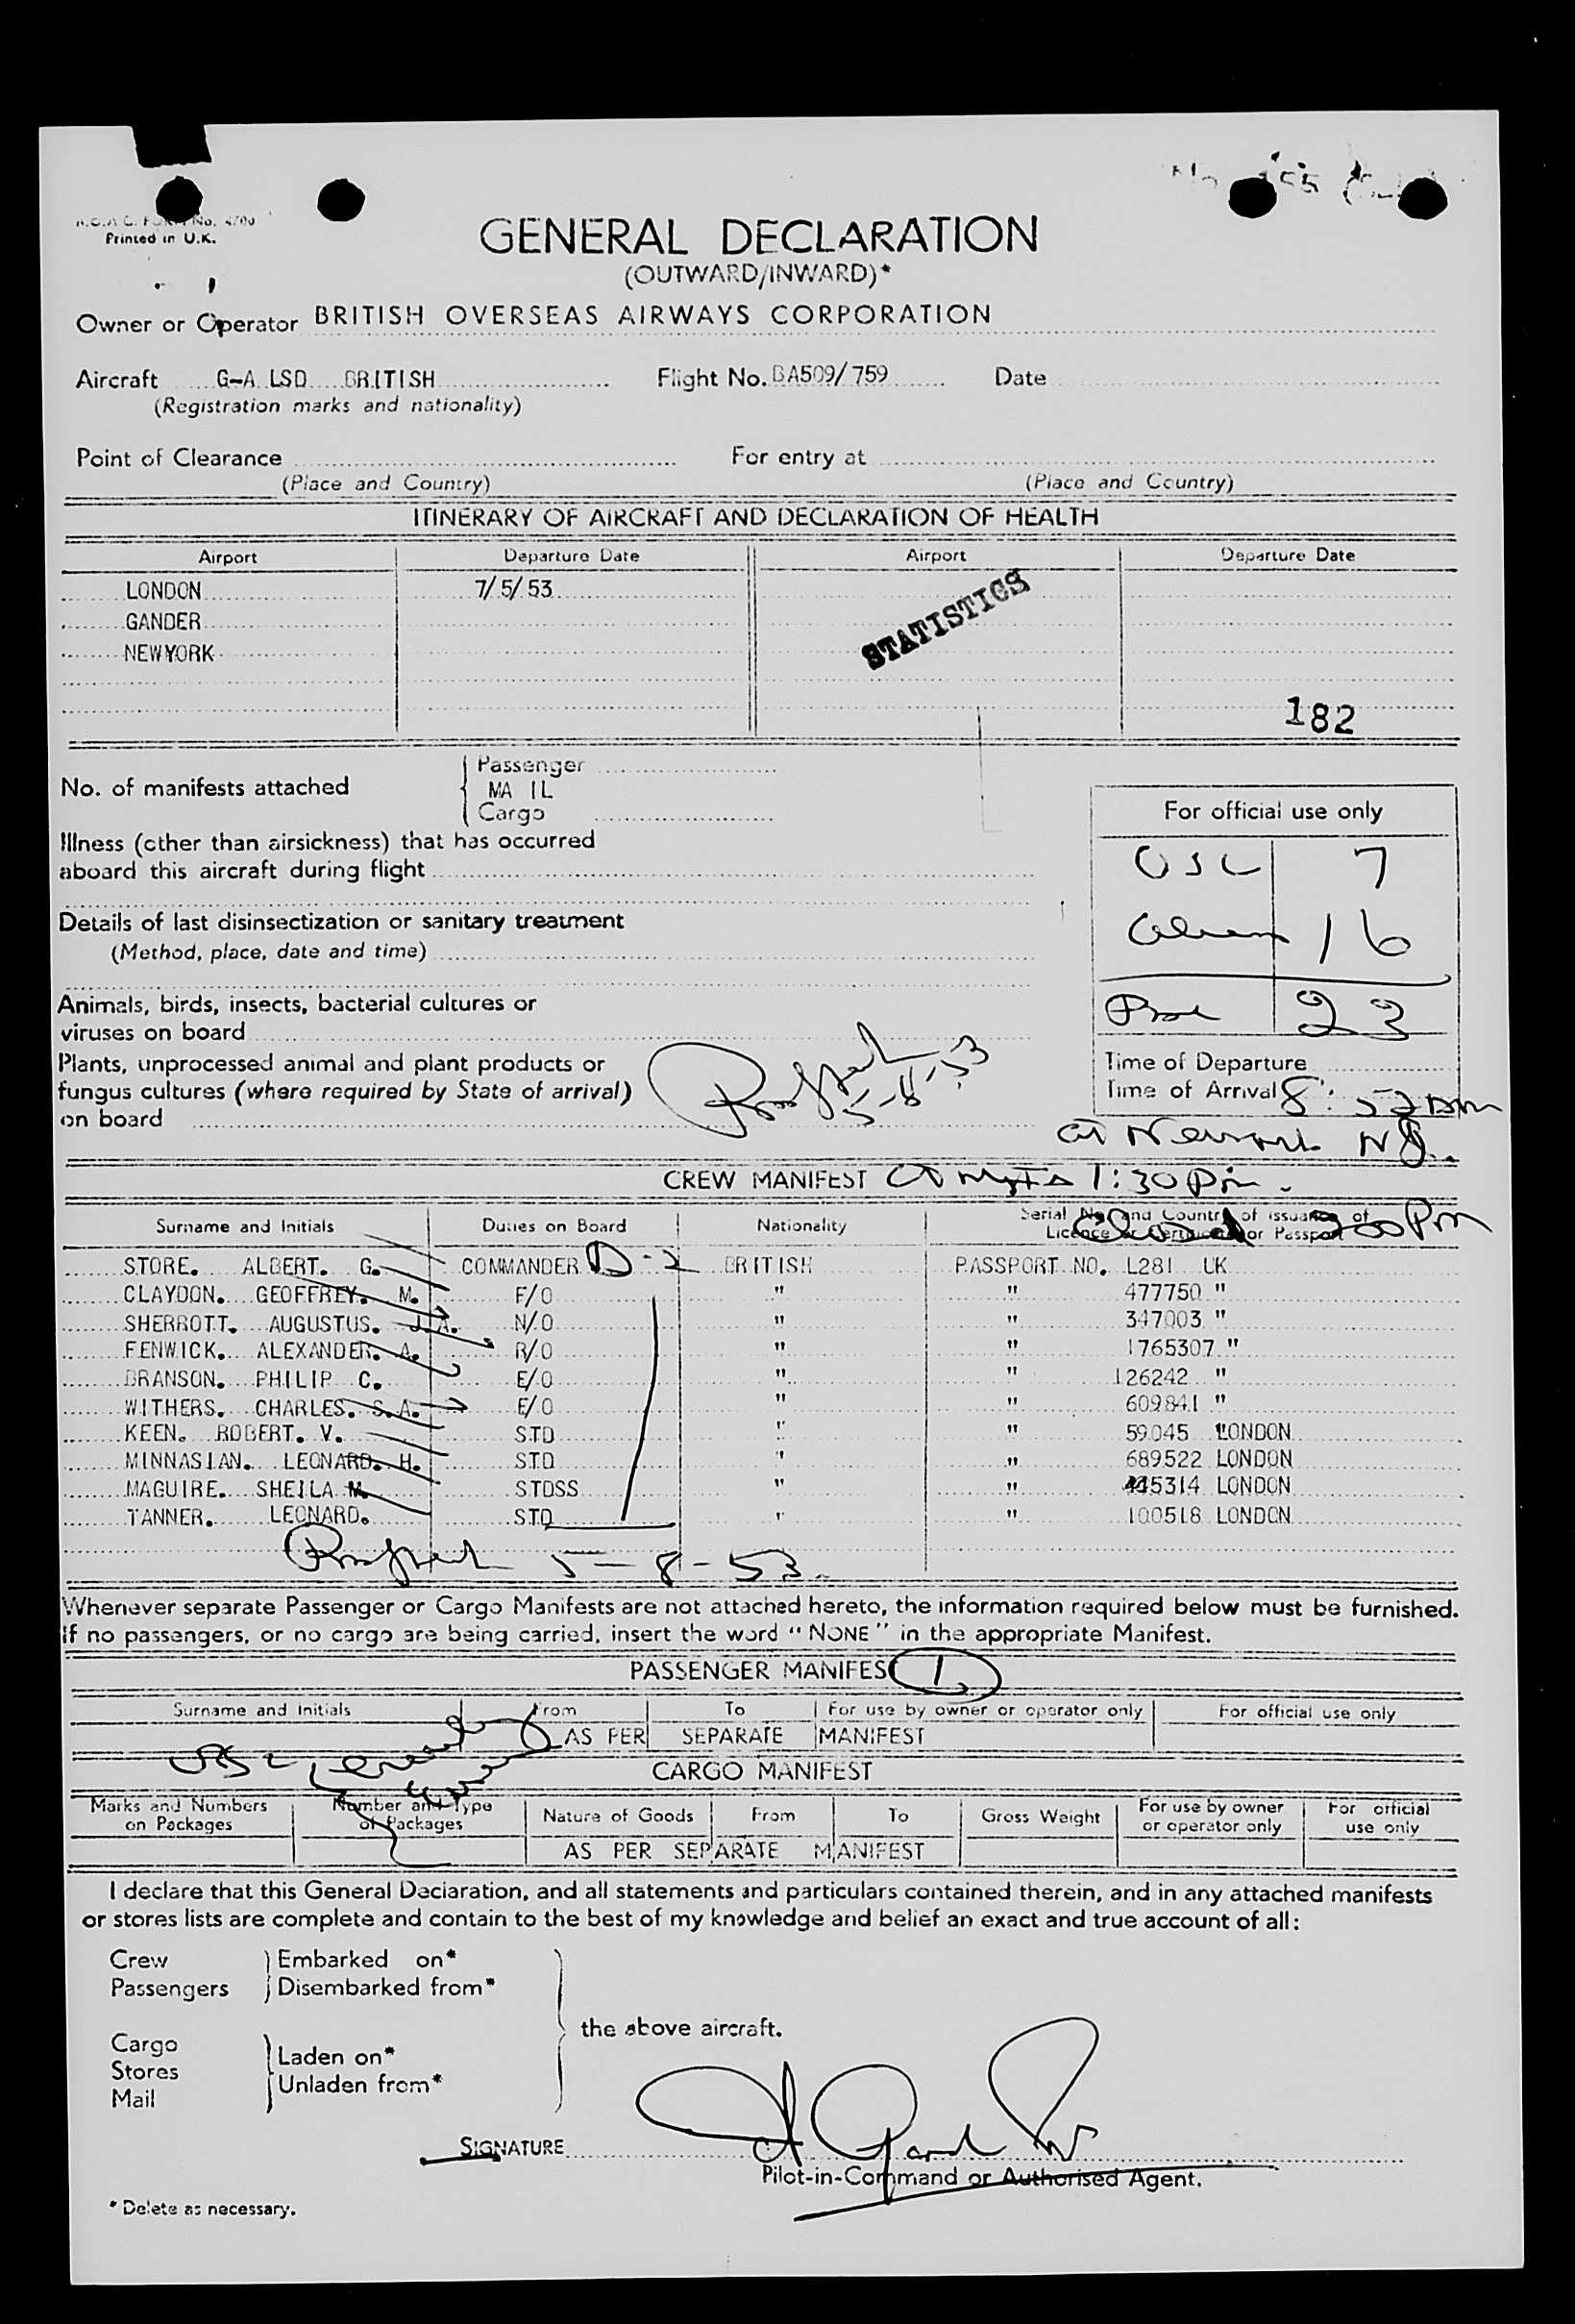 Printed in U.K.
GENERAL DECLARATION
(OUTWARD/INWARD)*
Owner or Operator BRITISH OVERSEAS AIRWAYS CORPORATION
Aircraft G-A LSD BRITISH Flight No. BA509/759 Date
(Registration marks and nationality)
Point of Clearance For entry at
(Place and Country) (Place and Country)
ITINERARY OF AIRCRAFT AND DECLARATION OF HEALTH
Airport Departure Date Airport Departure Date
LONDON 7/5/53
GANDER
NEWYORK
STATISTICS
182
No. of manifests attached
Passenger
MA IL
Cargo
For official use only
Illness (other than airsickness) that has occurred
aboard this aircraft during flight
USC 7
Details of last disinsectization or sanitary treatment
(Method, place, date and time)
16
Animals, birds, insects, bacterial cultures or
viruses on board
23
Plants, unprocessed animal and plant products or
fungus cultures (where required by State of arrival)
on board
5-8-53
Time of Departure
Time of Arrival 8:52
at Newark NJ.
CREW MANIFEST 1:30 Pm.
Surname and Initials Duties on Board Nationality Serial No. and Country of issuance of
Licence or Certificate or Passport
Closed 200 Pm
STORE. ALBERT. G. COMMANDER D-2 BRITISH PASSPORT NO. L281 UK
CLAYDON. GEOFFREY. M. F/O " " 477750 "
SHERROTT. AUGUSTUS. J.A. N/O " " 347003 "
FENWICK. ALEXANDER. A. R/O " " 1765307 "
BRANSON. PHILIP C. E/O " " 126242 "
WITHERS. CHARLES. S.A. E/O " " 609841 "
KEEN. ROBERT. V. STD " " 59045 LONDON
MINNASIAN. LEONARD. H. STD " " 689522 LONDON
MAGUIRE. SHEILA M. STDSS " " 5314 LONDON
TANNER. LEONARD. STD " " 100518 LONDON
5-8-53.
Whenever separate Passenger or Cargo Manifests are not attached hereto, the information required below must be furnished.
If no passengers, or no cargo are being carried, insert the word "NONE" in the appropriate Manifest.
PASSENGER MANIFES 1
Surname and Initials From To For use by owner or operator only For official use only
AS PER SEPARATE MANIFEST
CARGO MANIFEST
Marks and Numbers on Packages Number and Type of Packages Nature of Goods From To Gross Weight For use by owner or operator only For official use only
AS PER SEPARATE MANIFEST
I declare that this General Declaration, and all statements and particulars contained therein, and in any attached manifests
or stores lists are complete and contain to the best of my knowledge and belief an exact and true account of all:
Crew Embarked on*
Passengers Disembarked from*
the above aircraft.
Cargo
Stores
Mail
Laden on*
Unladen from*
SIGNATURE
Pilot-in-Command or Authorised Agent.
* Delete as necessary.